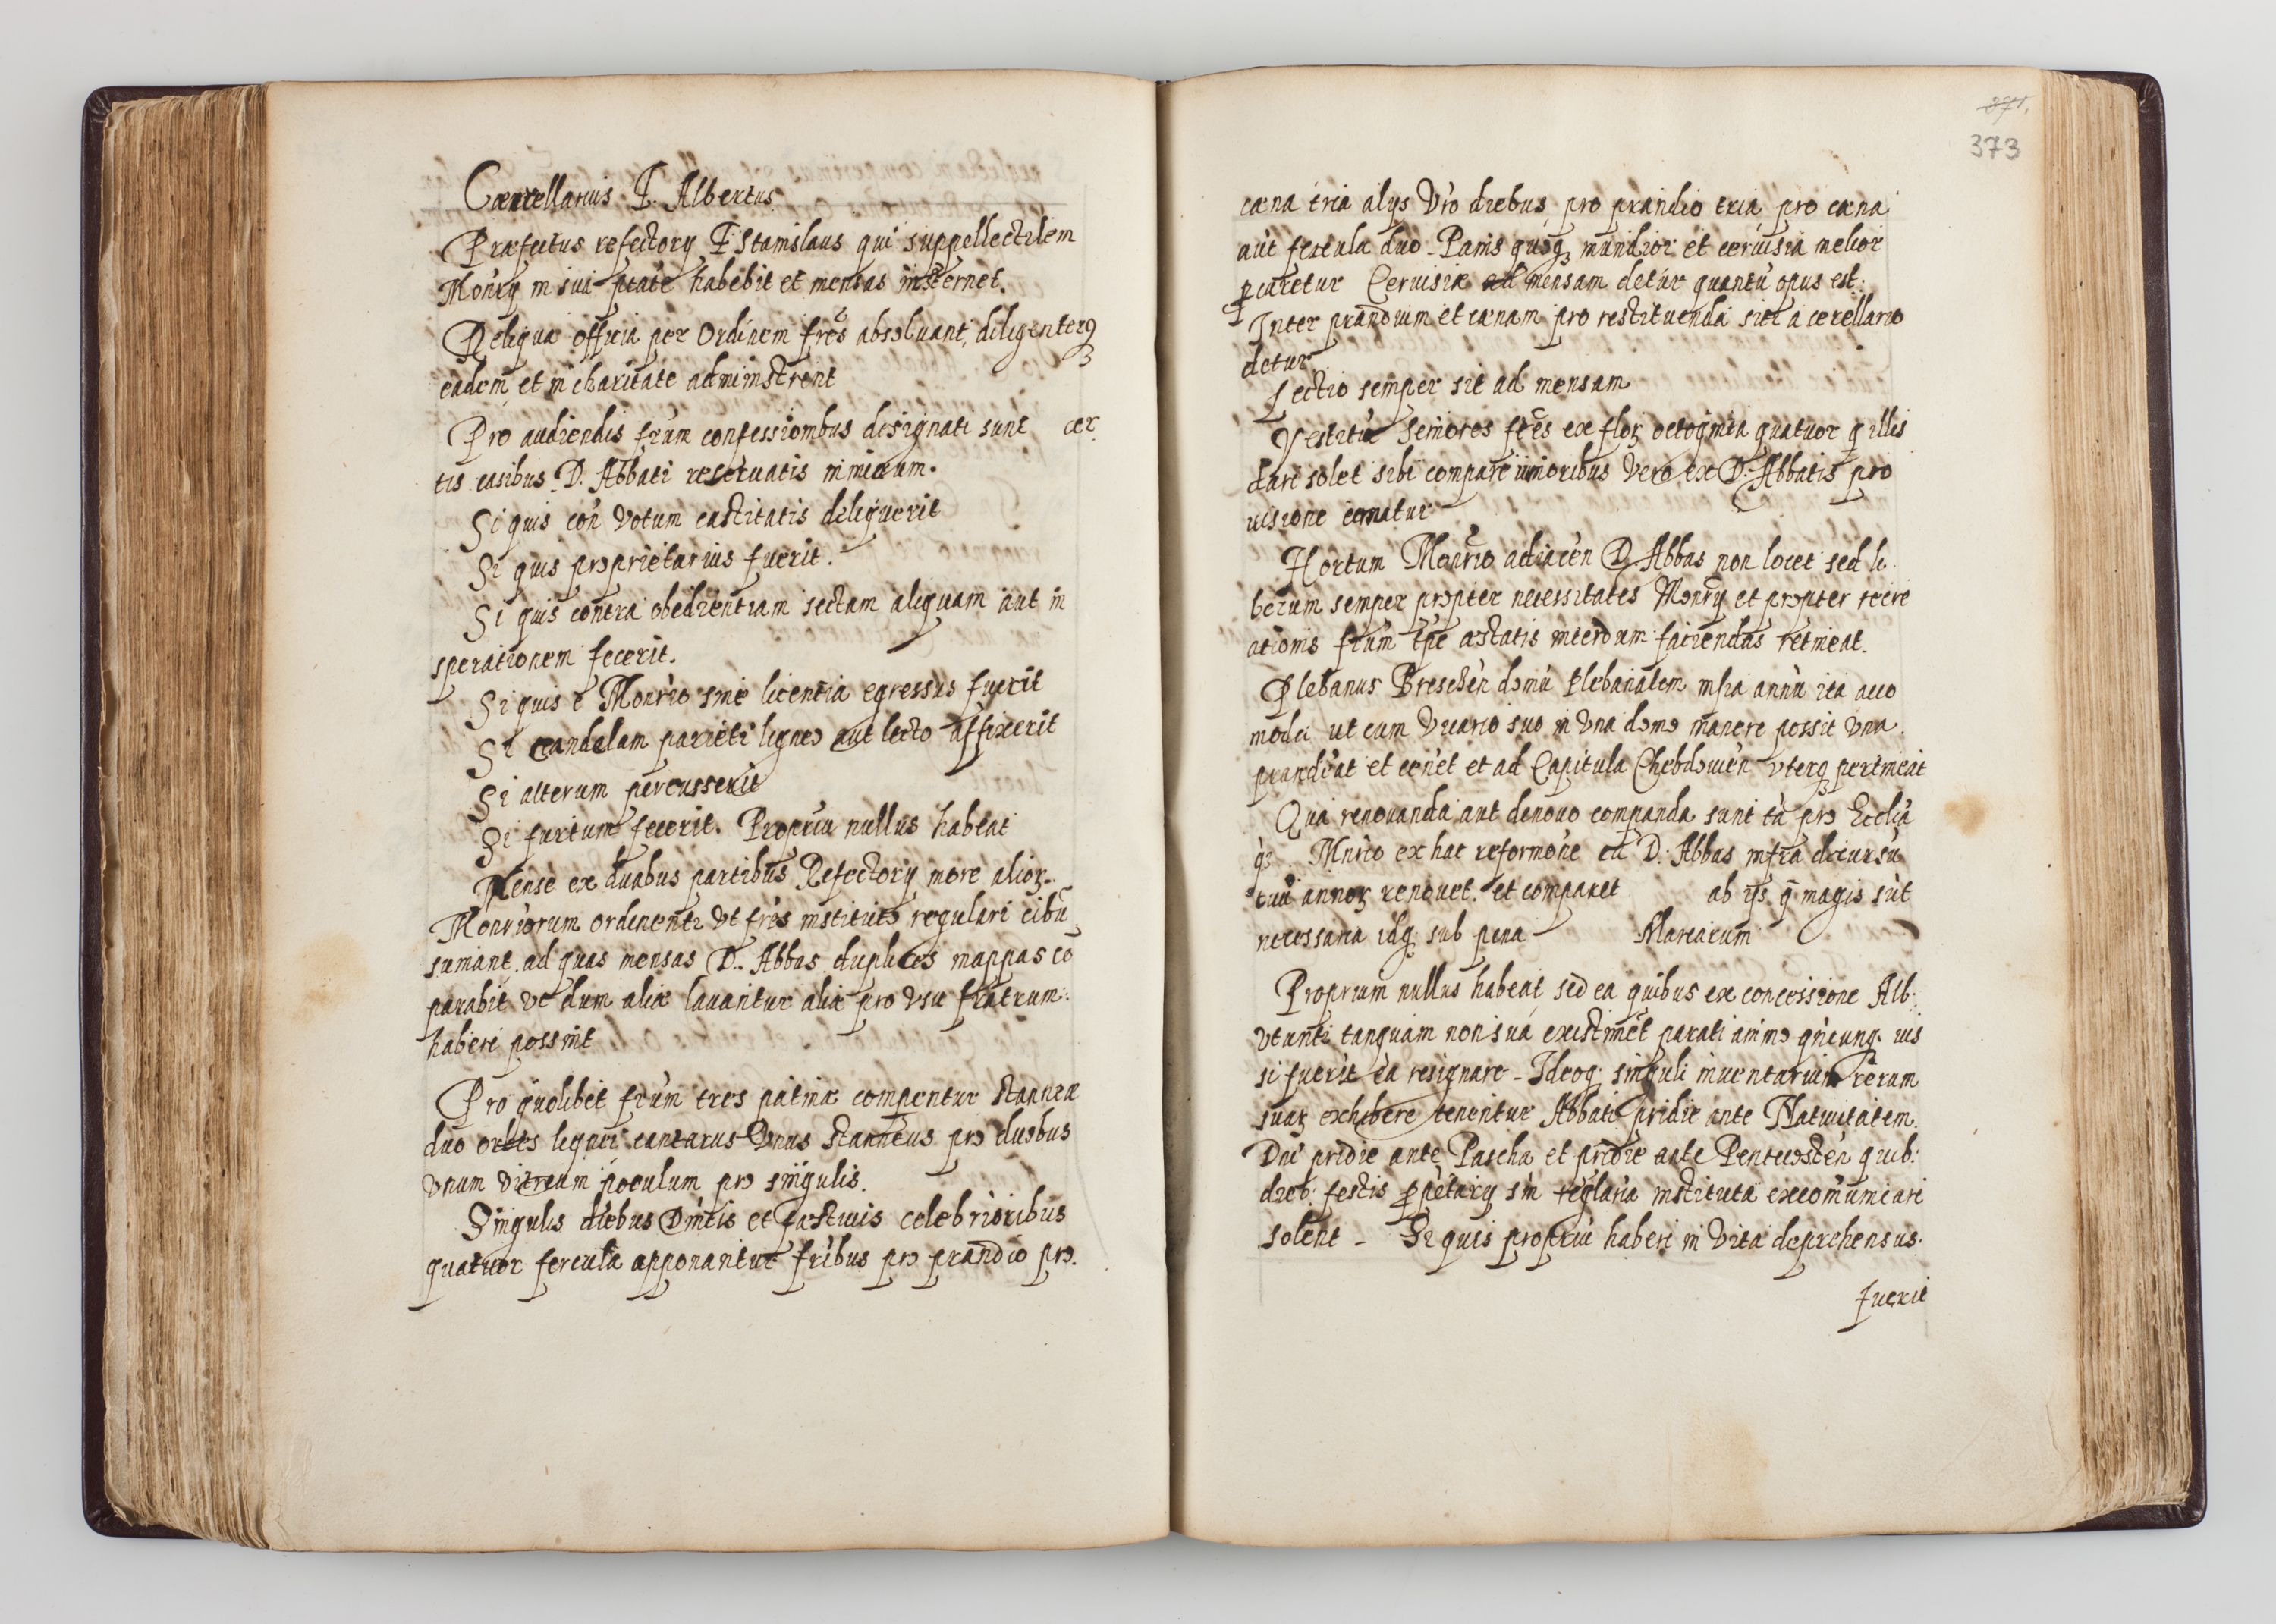 Cancellarius F. Albertus
Præfectus refectorij F Stanislaus qui suppellectilem
Monrij in sua ptate habebit et mensas insternet.
Reliqua officia per Ordinem fres absoluant, diligenter q3
eadem et in charitate administrent
Pro audiendis frum confessionibus designati sunt cer
tis casibus D. Abbati reseruatis nimirum.
Si quis con Votum castitatis deliquerit
Si quis proprietarius fuerit.
Si quis contra obedientiam sectam aliquam aut in
sperationem fecerit.
Si quis e Monrio sine licentia egressus fuerit
Si candelam parieti ligneo aut lecto affixerit
Si alterum percusserit
Si furtum fecerit. Propriu nullus habeat
Mense ex duabus partibus Refectorij more alioꝝ
Monriorum ordinentr Vt fres instituto regulari cibu
sumant. ad quas mensas D. Abbas duplices mappas co
parabit vt dum aliæ lauantur aliæ pro vsu fratrum
haberi possint
Pro quolibet frum tres patinæ compentur stanneæ
duo orbes lignei cantarus Vnus stanneus pro duobus
vnum vitreum poculum pro singulis.
Singulis diebus Dnicis et festiuis celebrioribus
quatuor fercula apponantur fribus pro prandio pro.
371.
373
cæna tria alijs Vro diebus pro prandio tria pro cæna
aut fercula duo Panis quoq3 mundior et ceruisia melior
pcuretur Ceruisia ad mensam detur quantu opus est.
Inter prandium et cænam pro restituenda siti a cerellario
detur
Lectio semper sit ad mensam
Vestitu Seniores fres ex floꝝ octoginta quatuor q illis
dari solet sibi compare iunioribus Vero ex D. Abbatis pro
uisione ematur
Hortum Monrio adiacen D Abbas non locet sed li
berum semper propter necessitates Monrij et propter recre
ationis frum tpe æstatis interdum faciendas retineat.
Plebanus Breschen domu Plebanalem infra annu ita acco
modet ut cum Vicario suo in Vna domo manere possit Vna
prandiat et cenet et ad Capitula Chebdowen vterq3 pertineat
Qua renouanda aut denouo companda sunt ta pro Ecclia
q3 Mnrio ex hac reformone ea D. Abbas infra decursu
tuu annoꝝ renouet. et comparet ab ijs q magis sut
necessaria idq sub pena Marcarum
Proprium nullus habeat sed ea quibus ex concessione Alb.
vtunti tanquam non sua existimet parati animo qncunq. ius
si fuerit ea resignare Ideoq singuli inuentarium rerum
suaꝝ exhibere tenentur Abbati pridie ante Natiuitatem
Dni pridie ante Pascha et pridie ante Pentecosten quib.
dieb. festis ppetarij sm reglaria instituta excomunicari
solent Si quis propriu haberi in Vita deprehensus.
fuerit